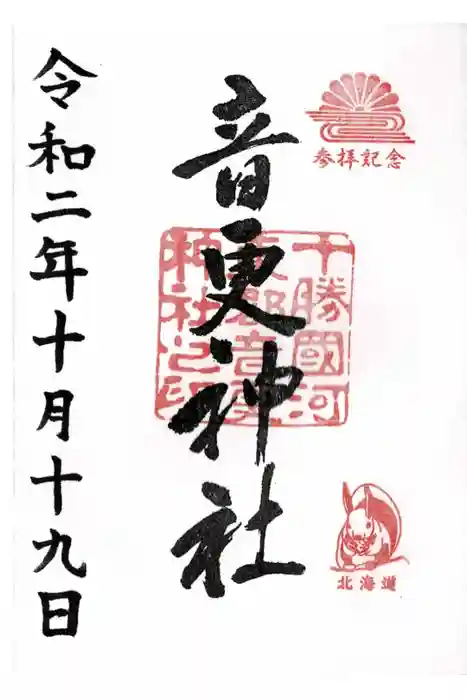 参拝記念
音更神社
十勝國河
東郡音更
神社之印
北海道
令和二年十月十九日